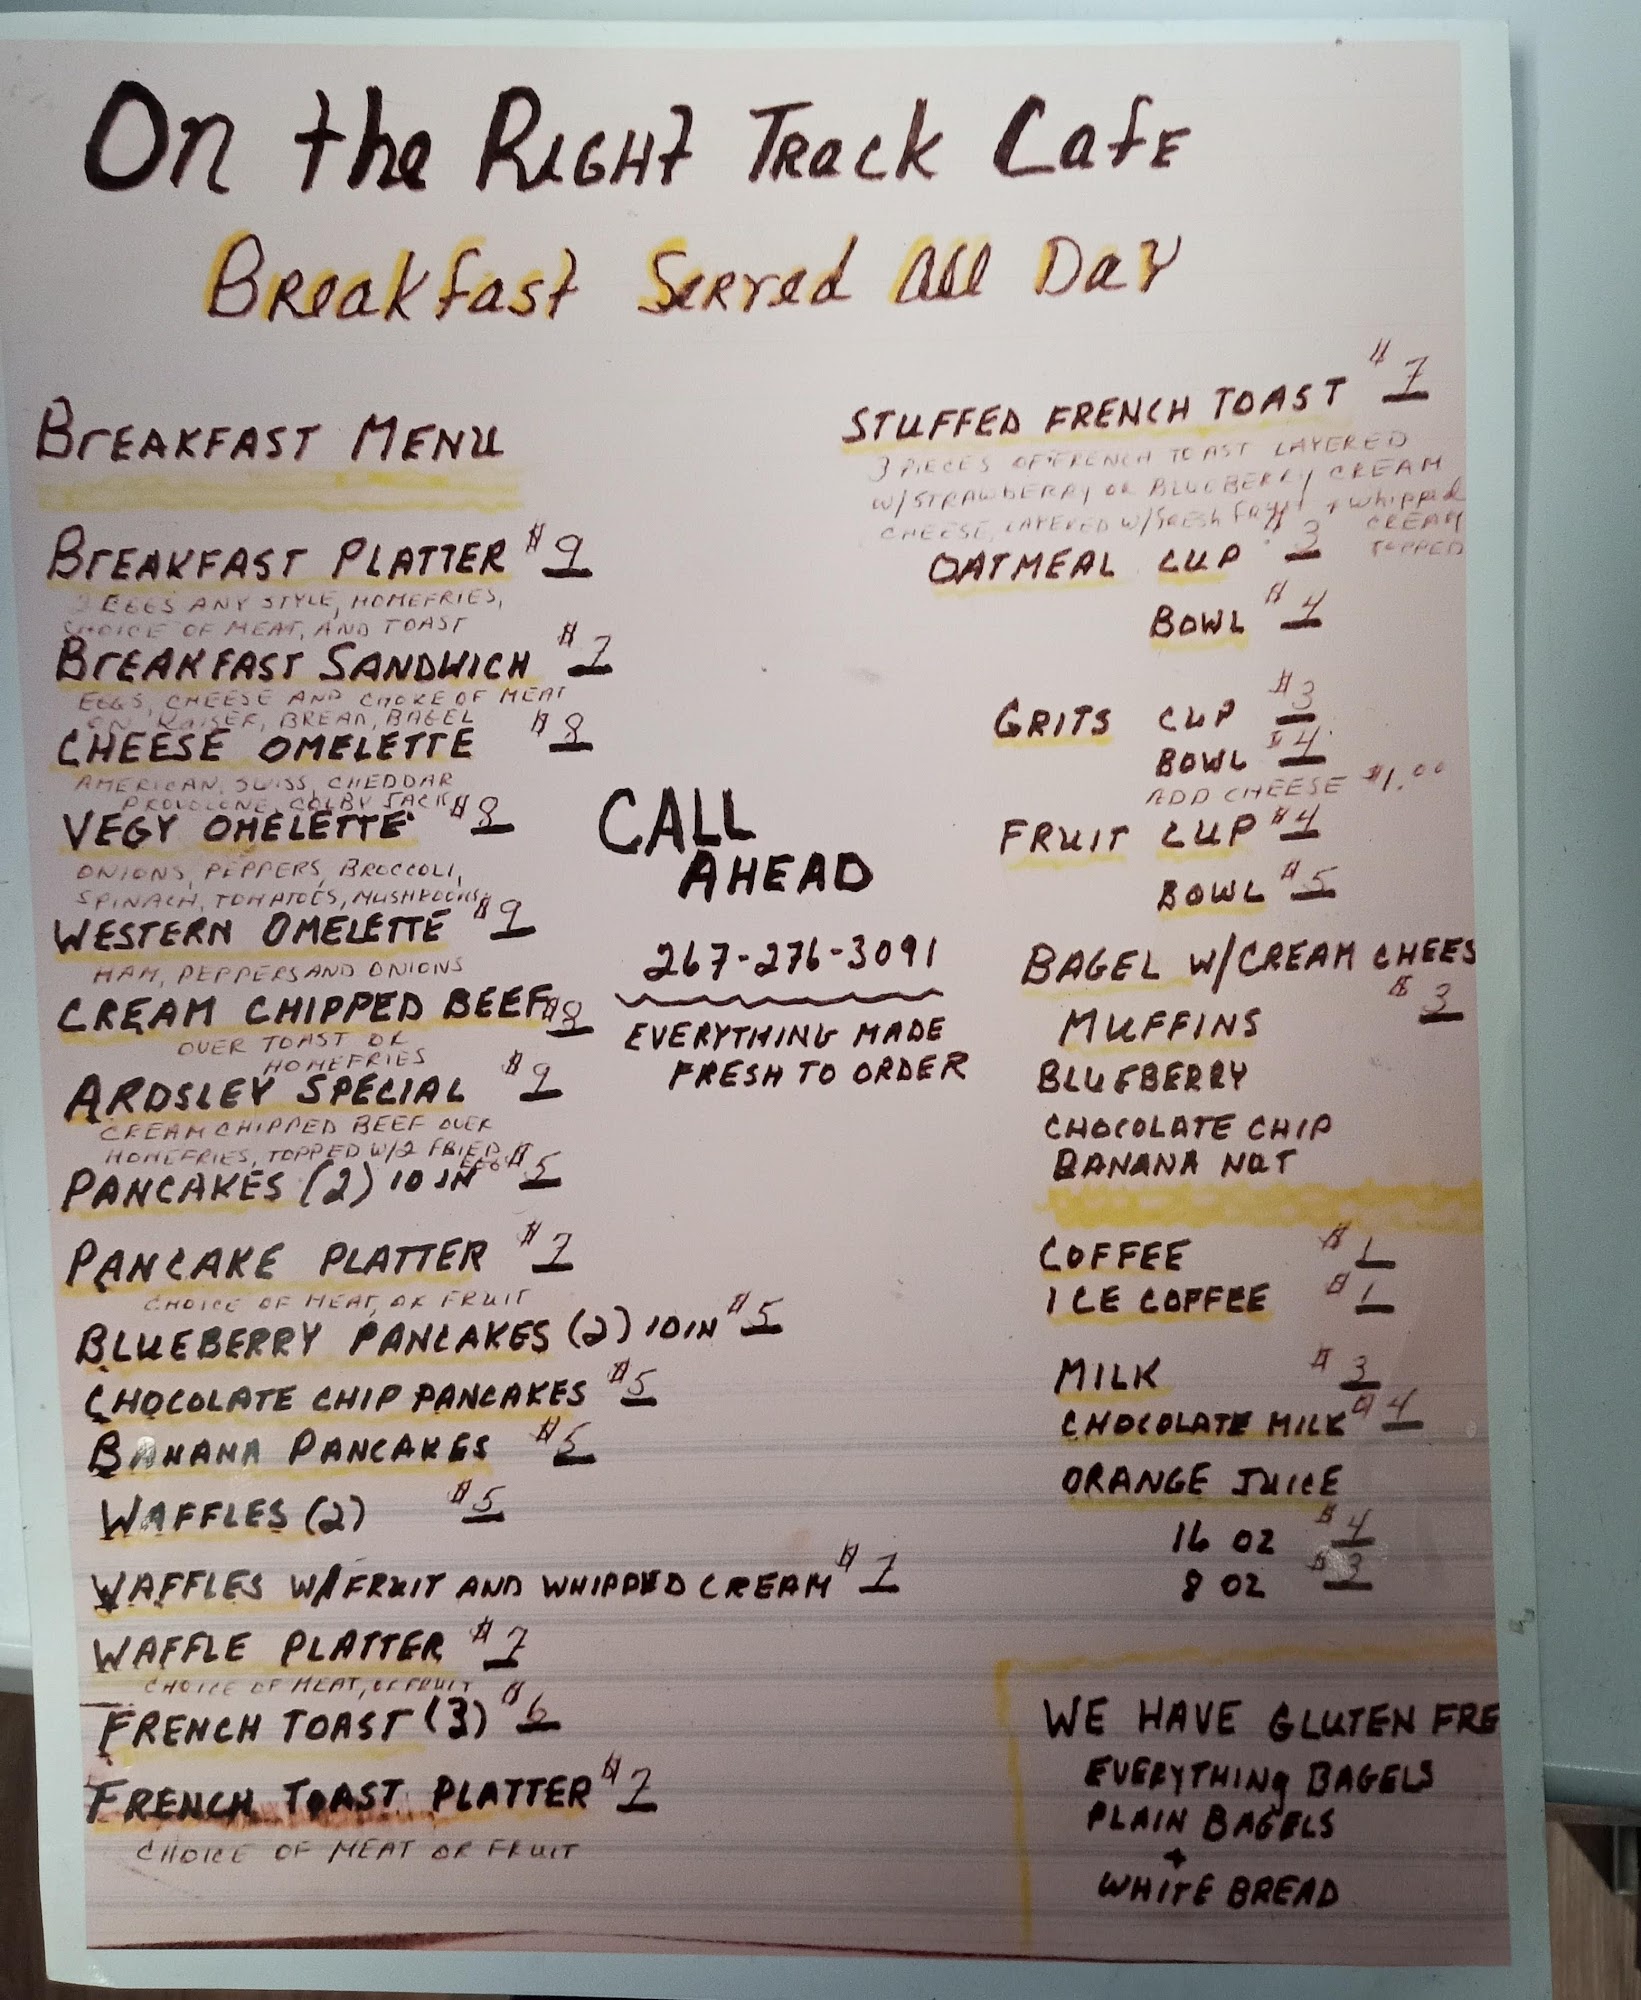 On the Right Track Cafe
Breakfast Served All Day
Breakfast Menu
BREAKFAST PLATTER $9
2 EGGS ANY STYLE, HOMEFRIES,
CHOICE OF MEAT, AND TOAST
BREAKFAST SANDWICH $7
EGGS, CHEESE AND CHOICE OF MEAT
ON KAISER, BREAD, BAGEL
CHEESE OMELETTE $8
AMERICAN, SWISS, CHEDDAR
PROVOLONE, COLBY JACK
VEGY OMELETTE $8
ONIONS, PEPPERS, BROCCOLI,
SPINACH, TOMATOES, MUSHROOMS
WESTERN OMELETTE $9
HAM, PEPPERS AND ONIONS
CREAM CHIPPED BEEF $8
OVER TOAST OR
HOMEFRIES
ARDSLEY SPECIAL $9
CREAM CHIPPED BEEF OVER
HOMEFRIES, TOPPED W/2 FRIED
EGGS
PANCAKES (2) 10 IN $5
PANCAKE PLATTER $7
CHOICE OF MEAT, OR FRUIT
BLUEBERRY PANCAKES (2) 10 IN $5
CHOCOLATE CHIP PANCAKES $5
BANANA PANCAKES $5
WAFFLES (2) $5
WAFFLES W/FRUIT AND WHIPPED CREAM $7
WAFFLE PLATTER $7
CHOICE OF MEAT, OR FRUIT
FRENCH TOAST (3) $6
FRENCH TOAST PLATTER $7
CHOICE OF MEAT OR FRUIT
CALL
AHEAD
267-276-3091
EVERYTHING MADE
FRESH TO ORDER
STUFFED FRENCH TOAST $7
3 PIECES OF FRENCH TOAST LAYERED
W/STRAWBERRY OR BLUEBERRY CREAM
CHEESE, LAYERED W/FRESH FRUIT + Whipped
CREAM
TOPPED
OATMEAL CUP $3
BOWL $4
GRITS CUP $3
BOWL $4
ADD CHEESE $1.00
FRUIT CUP $4
BOWL $5
BAGEL W/CREAM CHEES
$3
MUFFINS
BLUEBERRY
CHOCOLATE CHIP
BANANA NUT
COFFEE $1
ICE COFFEE $1
MILK $3
CHOCOLATE MILK $4
ORANGE JUICE
16 OZ $4
8 OZ $3
WE HAVE GLUTEN FRE
EVERYTHING BAGELS
PLAIN BAGELS
+
WHITE BREAD